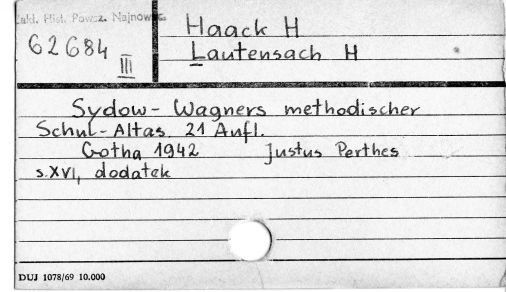 Zakł. Hist. Powsz. Najnowsz.
62684
III
Haack H
Lautensach H
Sydow - Wagners methodischer
Schul - Altas. 21 Aufl.
Gotha 1942 Justus Perthes
s. XVI, dodatek
DUJ 1078/69 10.000